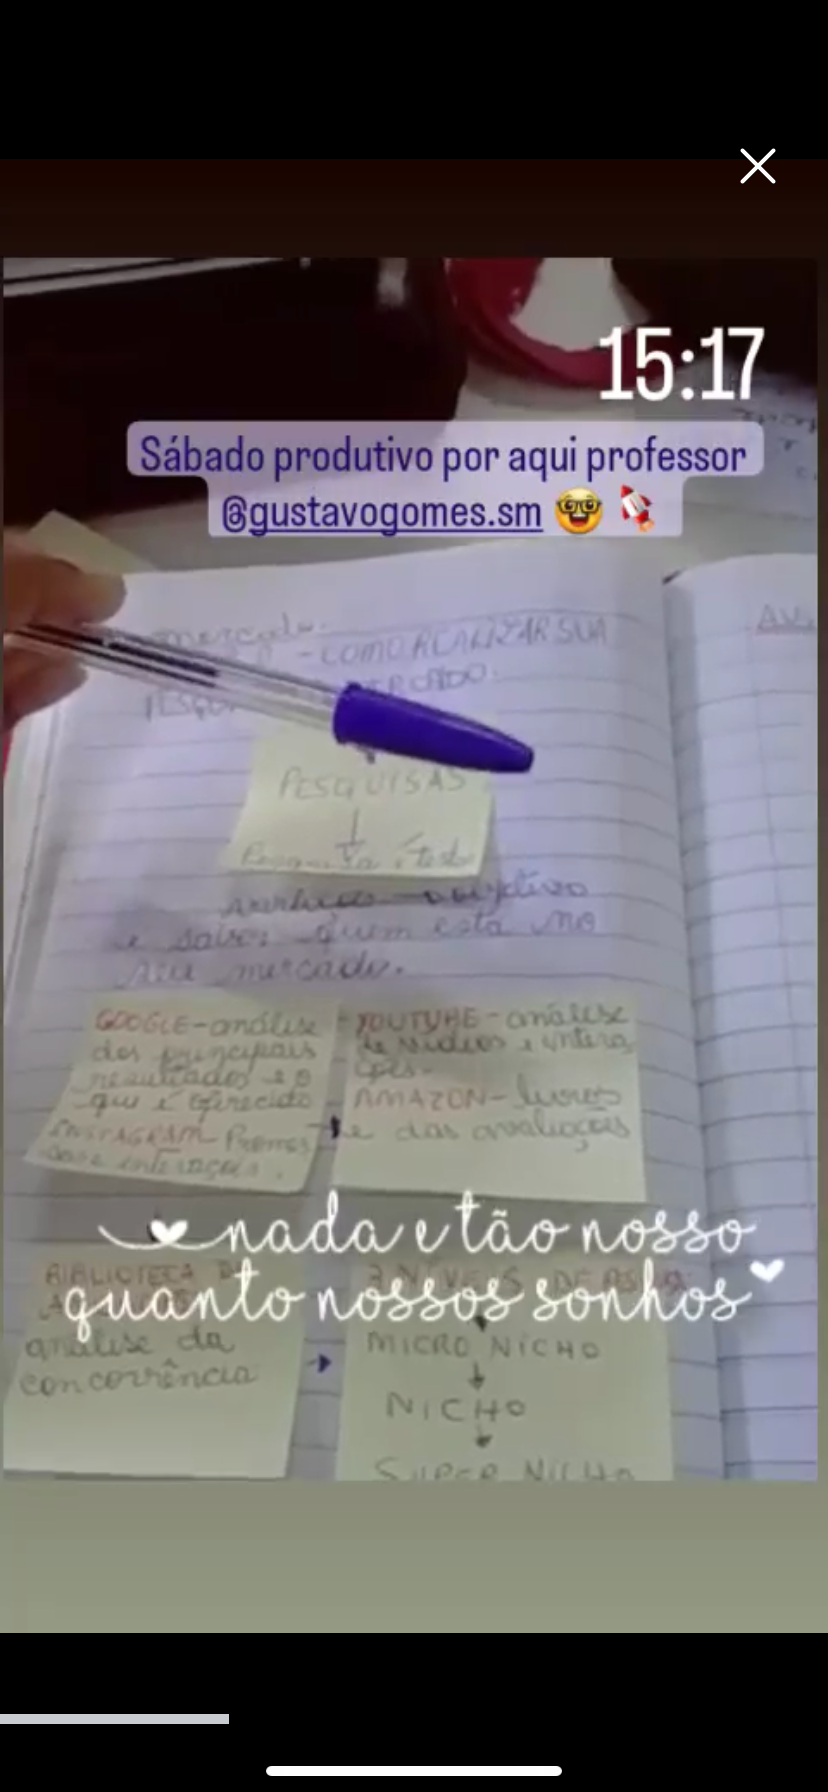 15:17
Sábado produtivo por aqui professor
@gustavogomes.sm 🤓 🚀
mercado.
- COMO REALIZAR SUA
MERCADO.
PESQUISAS
↓
objetivo
e saber quem está no
seu mercado.
GOOGLE-análise
dos principais
resultados e o
que é oferecido
INSTAGRAM
interações.
YOUTUBE-análise
de vídeos e intera
ções.
AMAZON-livros
e das avaliações
nada e tão nosso
quanto nossos sonhos
BIBLIOTECA
análise da
concorrência
→
3 NÍVEIS DE
MICRO NICHO
↓
NICHO
↓
SUPER NICHO
AV